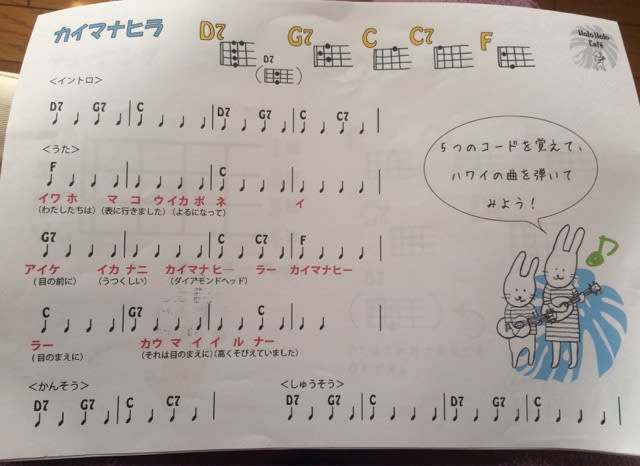 カイマナヒラ D7 G7 C C7 F
D7
HoloHolo
Cafe
<イントロ>
D7 G7 C D7 G7 C C7
<うた>
F C
イワ ホ マ コ ウイカ ポ ネ イ
(わたしたちは) (表に行きました) (よるになって)
5つのコードを覚えて、
ハワイの曲を弾いて
みよう!
G7 C C7 F
アイケ イカ ナニ カイマナ ヒー ラー カイマナヒー
(目の前に) (うつくしい) (ダイアモンドヘッド)
C G7 C
ラー カウ マ イ イ ル ナー
(目のまえに) (それは目のまえに)(高くそびえていました)
<かんそう> <しゅうそう>
D7 G7 C C7 D7 G7 C D7 G7 C